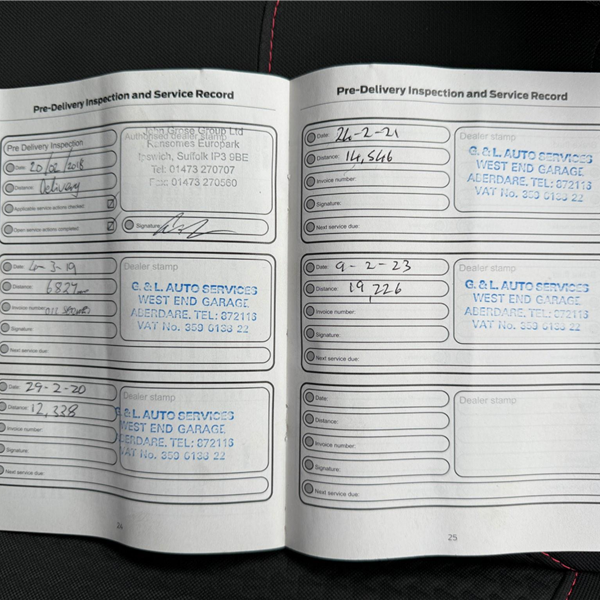 Pre-Delivery Inspection and Service Record
Pre Delivery Inspection
Date: 20/02/2018
Distance: Delivery
Applicable service actions checked
Open service actions completed
Authorised dealer stamp
John Grose Group Ltd
Ransomes Europark
Ipswich, Suffolk IP3 9BE
Tel: 01473 270707
Fax: 01473 270560
Signature:
Date: 4-3-19
Distance: 6827
Invoice number:
Signature:
Next service due:
Dealer stamp
G. & L. AUTO SERVICES
WEST END GARAGE
ABERDARE. TEL: 872116
VAT No. 350 6138 22
Date: 29-2-20
Distance: 12,328
Invoice number:
Signature:
Next service due:
Dealer stamp
G. & L. AUTO SERVICES
WEST END GARAGE
ABERDARE. TEL: 872116
VAT No. 350 6138 22
24
Pre-Delivery Inspection and Service Record
Date: 24-2-21
Distance: 14,546
Invoice number:
Signature:
Next service due:
Dealer stamp
G. & L. AUTO SERVICES
WEST END GARAGE
ABERDARE. TEL: 872116
VAT No. 350 6138 22
Date: 9-2-23
Distance: 19,226
Invoice number:
Signature:
Next service due:
Dealer stamp
G. & L. AUTO SERVICES
WEST END GARAGE
ABERDARE. TEL: 872116
VAT No. 350 6138 22
Date:
Distance:
Invoice number:
Signature:
Next service due:
Dealer stamp
25